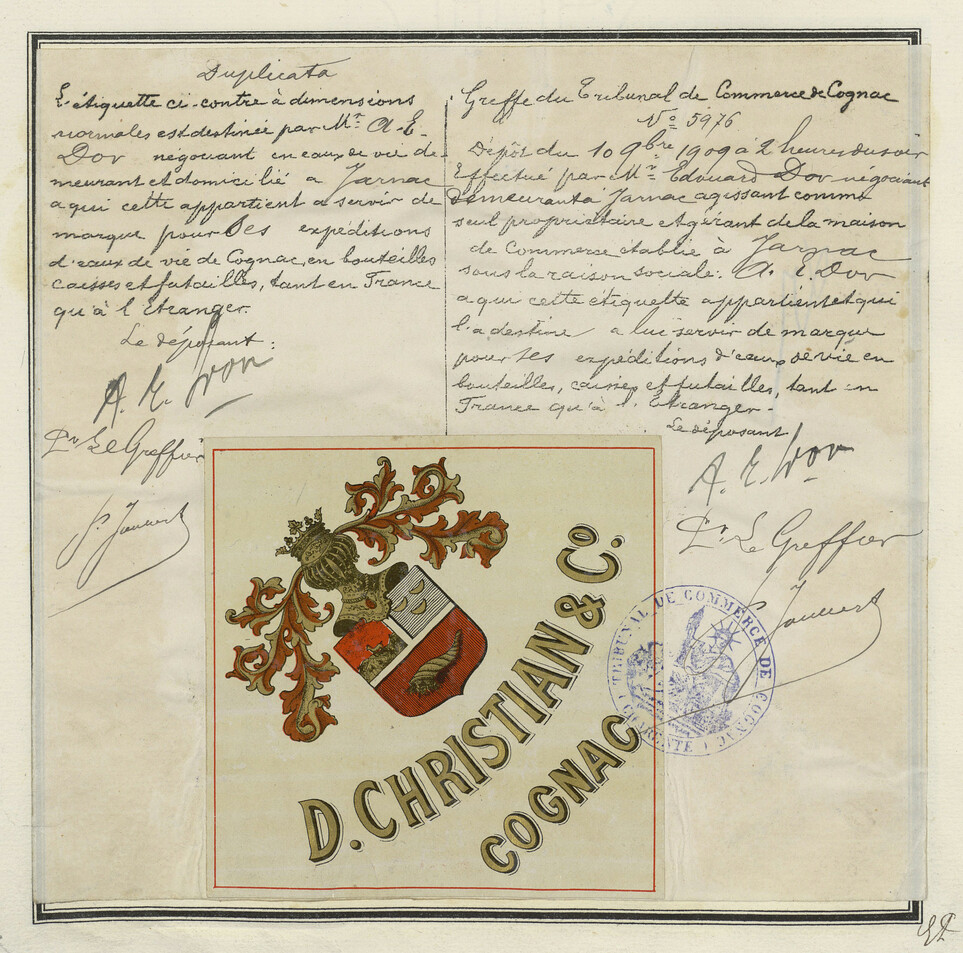 Duplicata
L'étiquette ci-contre à dimensions
normales est destinée par Mr. A. E.
Dor négociant en eaux de vie de-
meurant et domicilié à Jarnac
a qui cette appartient a servir de
marque pour Ses expéditions
d'eaux de vie de Cognac, en bouteilles
caisses et futailles, tant en France
qu'à l'Etranger.
Le déposant :
A. E. Dor
Pr. Le Greffier
Greffe du Tribunal de Commerce de Cognac
No 5976
Dépôt du 10 9bre 1909 à 2 heures du soir
Effectué par Mr. Edouard Dor négociant
demeurant à Jarnac agissant comme
seul propriétaire et gérant de la maison
de Commerce établie à Jarnac
sous la raison sociale : A. E. Dor
a qui cette étiquette appartient et qui
l'a destine a lui servir de marque
pour ses expéditions d'eaux de vie en
bouteilles, caisses et futailles, tant en
France qu'à l'Etranger.
Le déposant
A. E. Dor
Pr. Le Greffier
D. CHRISTIAN & Co.
COGNAC
TRIBUNAL DE COMMERCE DE COGNAC
(CHARENTE)